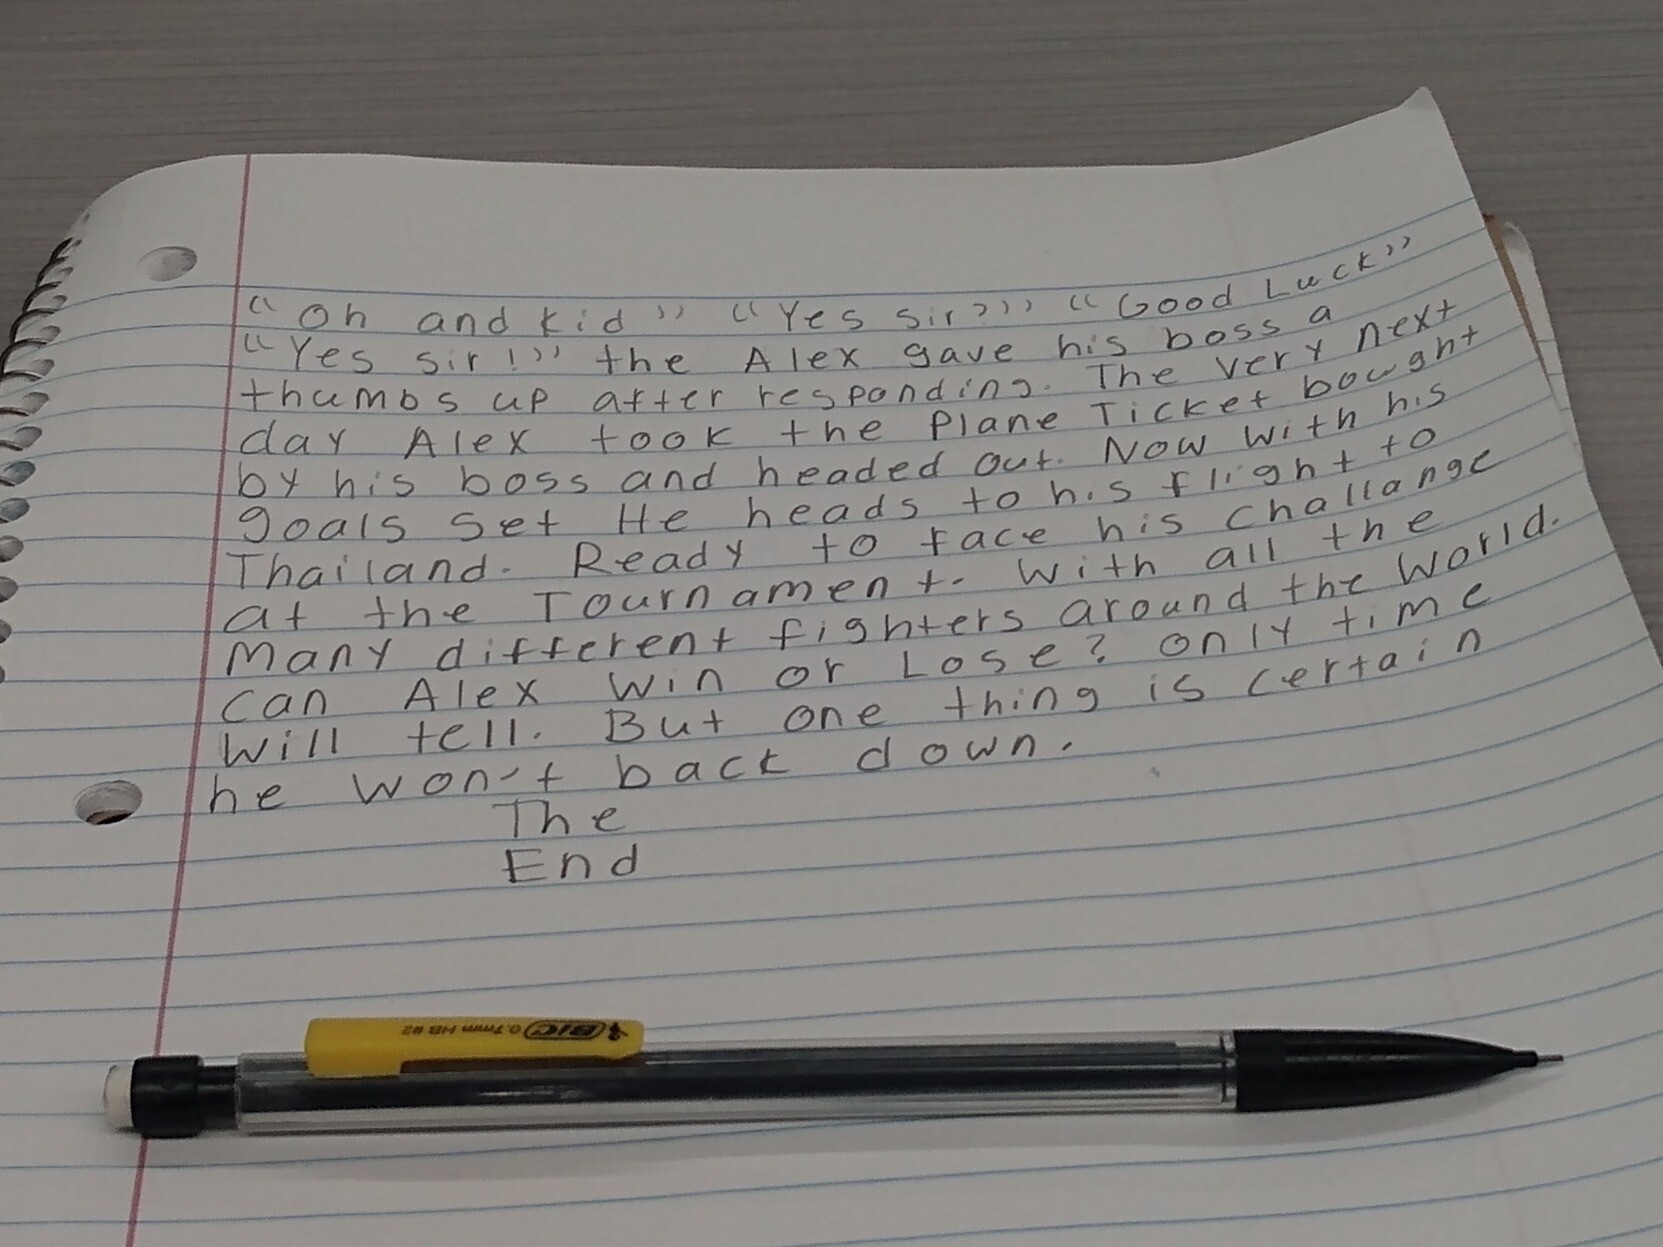 “Oh and kid” “Yes sir?” “Good Luck”
“Yes sir!” the Alex gave his boss a
thumbs up after responding. The very next
day Alex took the Plane Ticket bought
by his boss and headed out. Now with his
goals set He heads to his flight to
Thailand. Ready to face his challange
at the Tournament. With all the
Many different fighters around the World.
can Alex win or Lose? only time
will tell. But one thing is certain
he won't back down.
The
End
BIC 0.7mm HB #2